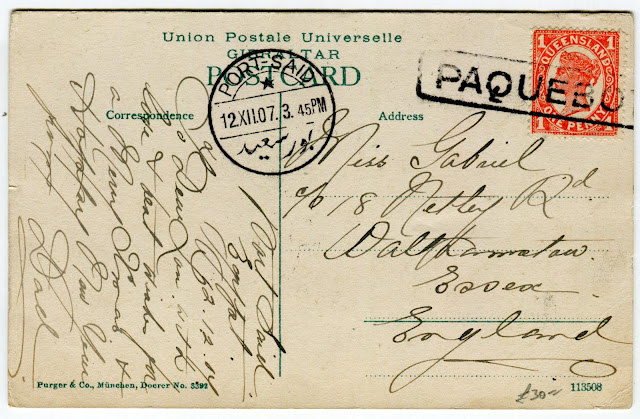 Union Postale Universelle
GIBRALTAR
POSTCARD
PORT-SAID
12.XII.07. 3.45PM
بور سعيد
PAQUEBO
QUEENSLAND
1 1
ONE PENNY
1 1
Correspondence
Address
Port Said
Egypt
12.12.07
To Dear with
love & best wishes for
a Merry Xmas &
Happy New Year
from Dad
Miss Gabriel
c/o 18 Netley Rd
Walthamstow
Essex
England
Purger & Co., München, Doerer No. 3392
113508
£30~